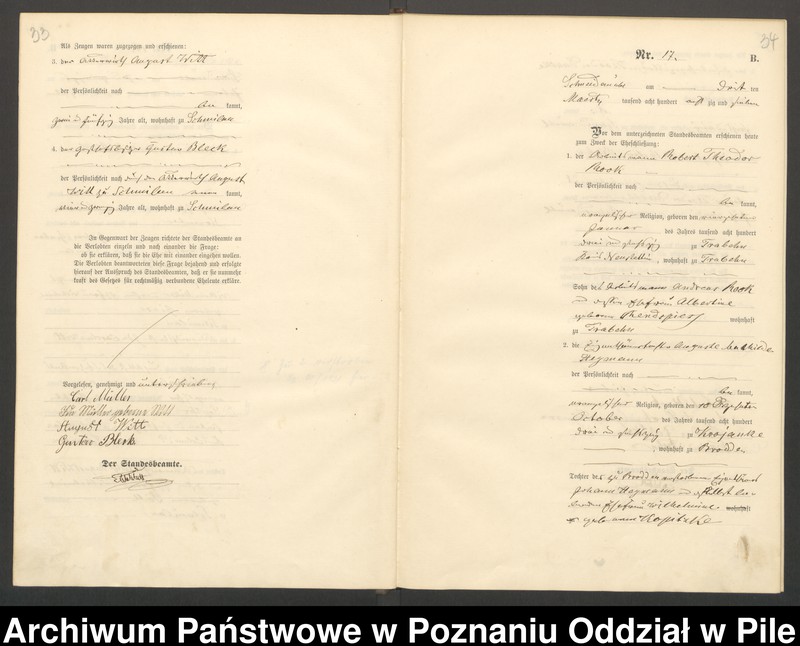 33
Als Zeugen waren zugezogen und erschienen:
3. der August Witt
der Persönlichkeit nach
kannt,
zwei u fünfzig Jahre alt, wohnhaft zu Schmilau
4. der Gustav Bleck
der Persönlichkeit nach durch den August
Witt zu Schmilau kannt,
Jahre alt, wohnhaft zu Schmilau
In Gegenwart der Zeugen richtete der Standesbeamte an
die Verlobten einzeln und nach einander die Frage:
ob sie erklären, daß sie die Ehe mit einander eingehen wollen.
Die Verlobten beantworteten diese Frage bejahend und erfolgte
hierauf der Ausspruch des Standesbeamten, daß er sie nunmehr
kraft des Gesetzes für rechtmäßig verbundene Eheleute erkläre.
Vorgelesen, genehmigt und unterschrieben
Carl Müller
Müller geborene Witt
August Witt
Gustav Bleck
Der Standesbeamte.
34
Nr. 17. B.
am ten
tausend acht hundert acht zig und sieben
Vor dem unterzeichneten Standesbeamten erschienen heute
zum Zweck der Eheschließung:
1. der Arbeitsmann Robert Theodor
Rook
der Persönlichkeit nach
be kannt,
evangelischer Religion, geboren den
Januar des Jahres tausend acht hundert
drei und sechszig zu Trabehn
Kreis Neustettin, wohnhaft zu Trabehn
Sohn des Arbeitsmann Andreas Rook
und dessen Ehefrau Albertine
geborene wohnhaft
zu Trabehn
2. die Auguste Mathilde
Heymann
der Persönlichkeit nach
be kannt,
evangelischer Religion, geboren den
October des Jahres tausend acht hundert
drei und sechszig zu Krojanke
, wohnhaft zu Brodden
Tochter des zu Brodden verstorbenen Eigenthümer
Johann Heymann und
Ehefrau Wilhelmine wohnhaft
geborenen Kopitzke
Archiwum Państwowe w Poznaniu Oddział w Pile